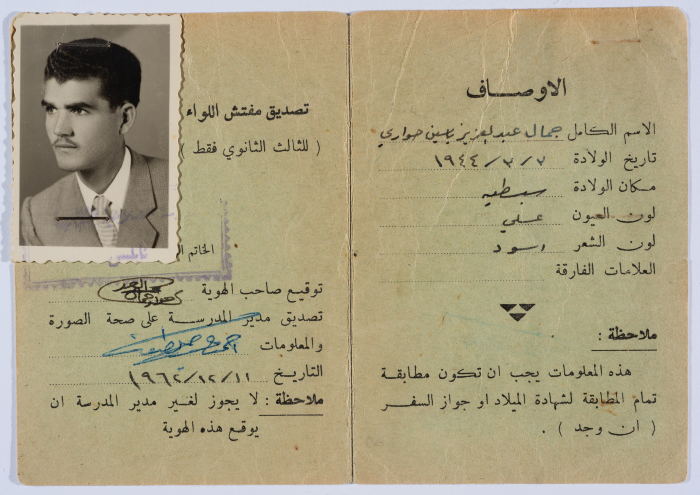 الاوصاف
الاسم الكامل جمال عبد العزيز ياسين حواري
تاريخ الولادة ٣/٣/١٩٤٤
مكان الولادة سبسطيه
لون العيون عسلي
لون الشعر اسود
العلامات الفارقة
ملاحظة :
هذه المعلومات يجب ان تكون مطابقة
تمام المطابقة لشهادة الميلاد او جواز السفر
( ان وجد ) .
تصديق مفتش اللواء
( للثالث الثانوي فقط )
الخاتم
نابلس
توقيع صاحب الهوية
تصديق مدير المدرسة على صحة الصورة
والمعلومات
التاريخ ١٩٦٢/١٢/١١
ملاحظة : لا يجوز لغير مدير المدرسة ان
يوقع هذه الهوية